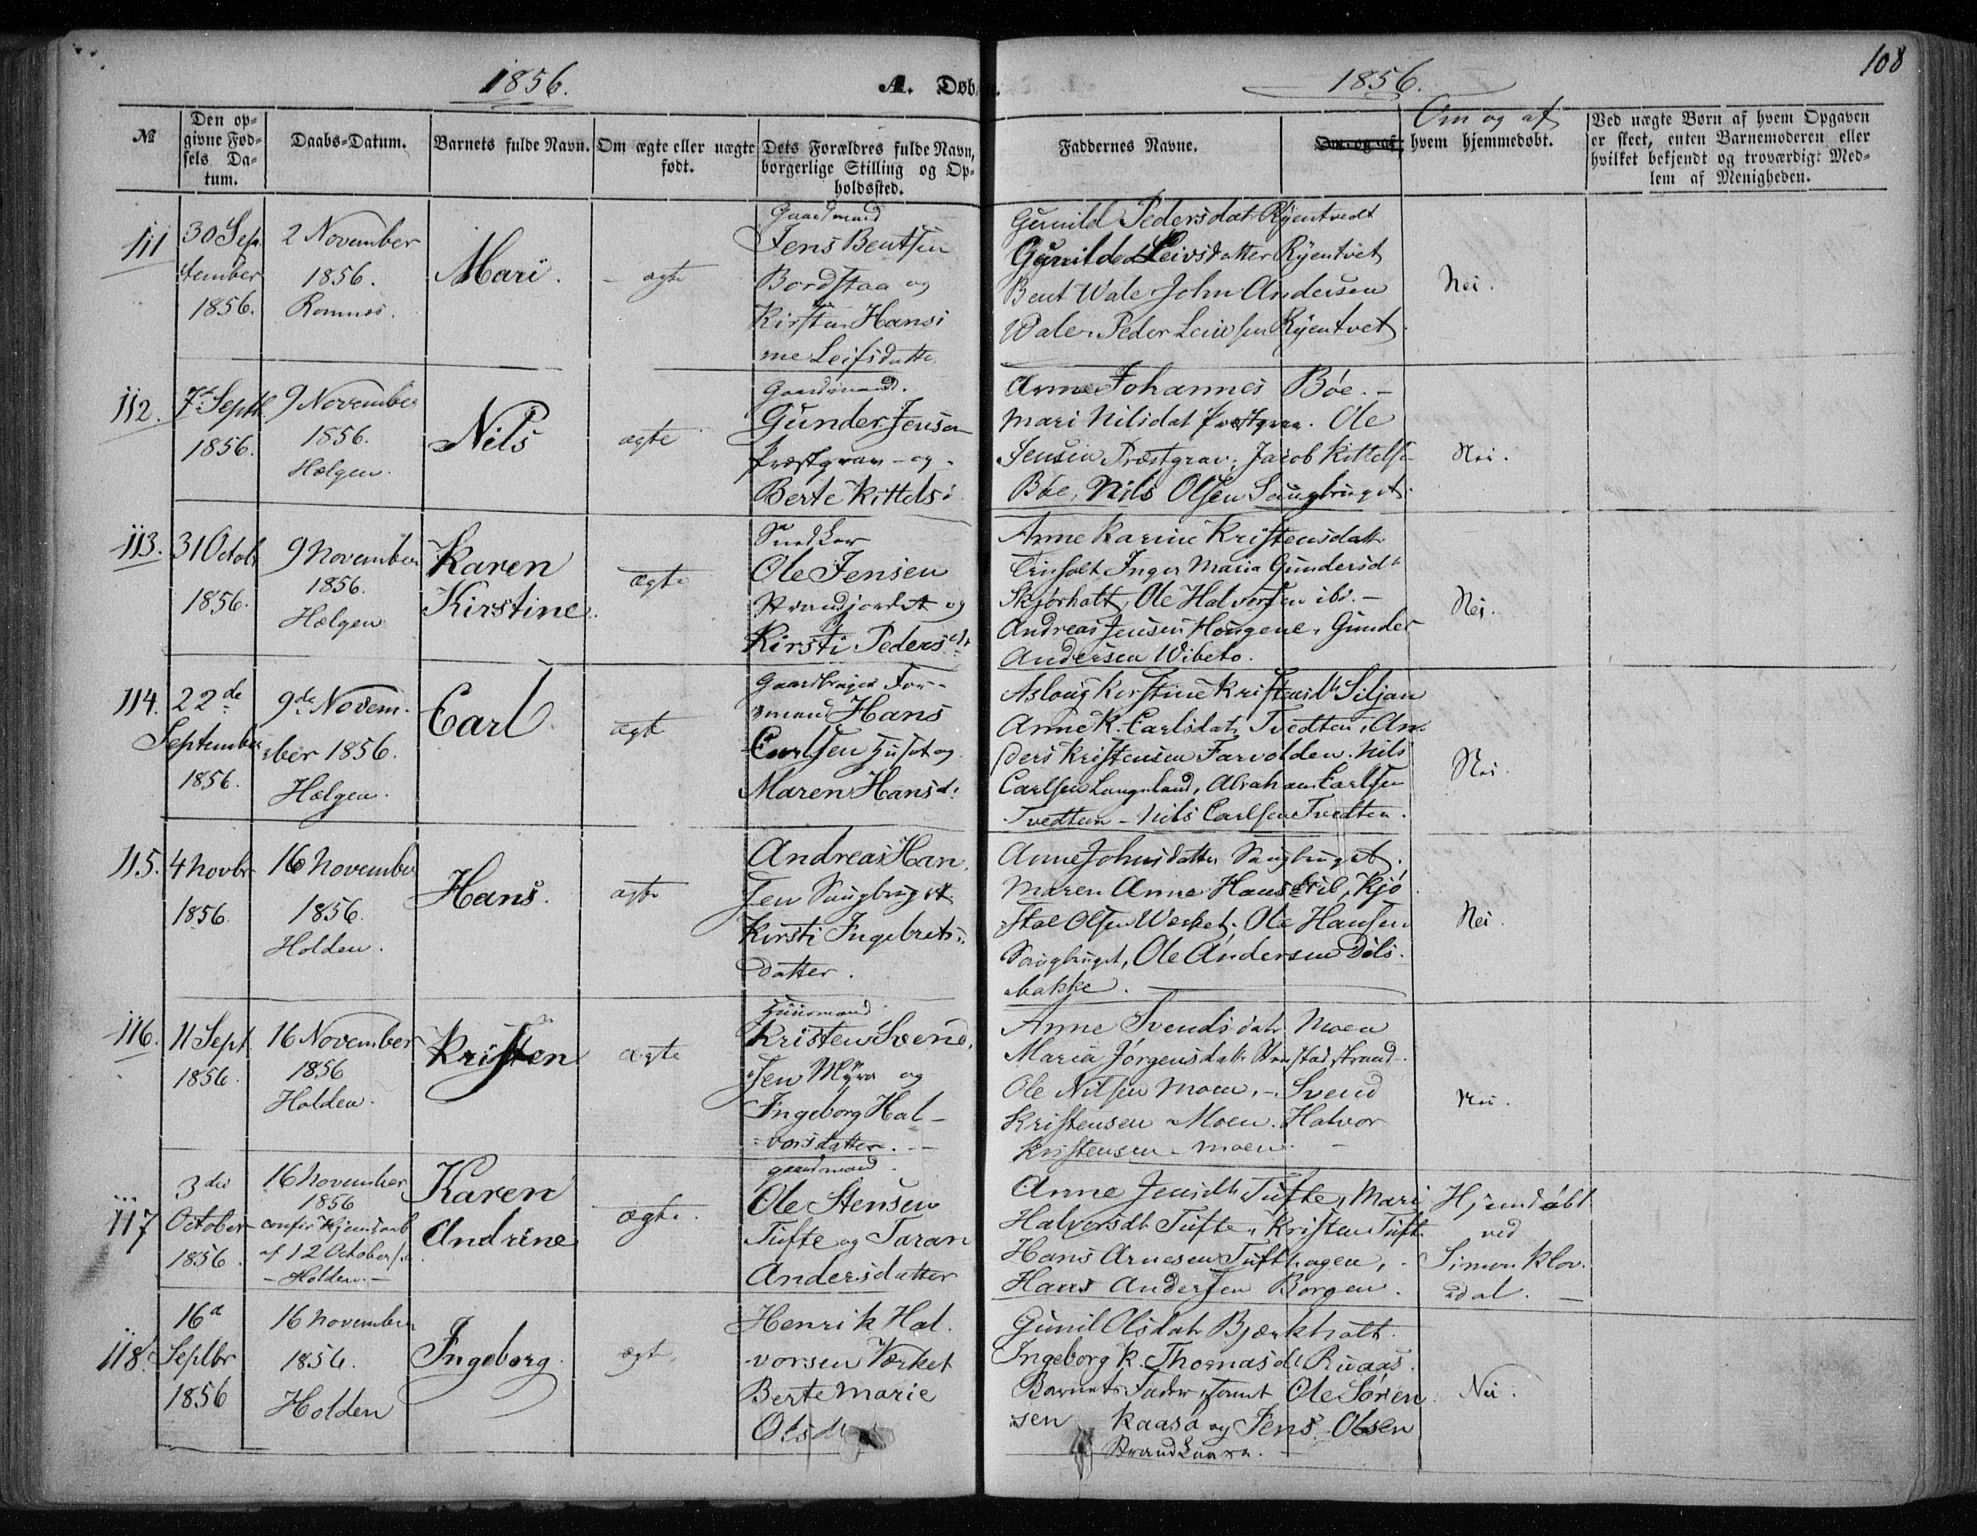 1856. A. Døb 1856. 108
№
Den op-
givne Fød-
sels Da-
tum.
Daabs-Datum.
Barnets fulde Navn.
Om ægte eller uægte
født.
Dets Forældres fulde Navn,
borgerlige Stilling og Op-
holdssted.
Faddernes Navne.
Om og af
Om og af
hvem hjemmedøbt.
Ved uægte Børn af hvem Opgaven
er skeet, enten Barnemoderen eller
hvilket bekjendt og troværdigt Med-
lem af Menigheden.
111
30 Sep
tember
1856.
2 November
1856.
Romnes.
Mari.
ægte
Gaardmand
Jens Bentsen
Bordstaa og
Kirsten Hansi
ne Leifsdatte
Gunild Pedersdat Ryentvedt
Gunild Leivsdatter Ryentvet
Bent Wale John Andersen
Wale. Peder Leivsen Ryentvet.
Nei.
112.
7. Septb
1856.
9 November
1856.
Hælgen.
Nils
ægte
Gaardmand.
Gunder Jensen
Præstgrav - og -
Berte Kittels
Anne Johannes Bøe. -
Mari Nilsdat Præstgrav. Ole
Jensen Præstgrav, Jacob Kittelse
Bøe, Nils Olsen Saugbruget.
Nei.
113.
31 Octobr
1856.
9 November
1856.
Hælgen
Karen
Kirstine.
ægte
Snedker
Ole Jensen
Strandjordet og
Kirsti Peders dt
Anne Karine Kristensdatt
Inger Maria Gundersdt
Skjørholt, Ole Halvorsen ibi. -
Andreas Jensen Hougene, Gunder
Andersen Wibeto.
Nei.
114.
22de
September
1856.
9de Novem-
ber 1856.
Hælgen.
Carl
ægte
Gaardbruger For-
mand Hans
Carlsen og
Maren Hansd.
Asloug Kirstine Kristensdt Siljan
Anne K. Carlsdat Tvedten, An-
ders Kristensen Farvolden. Nils
Carlsen Langeland, Abraham Carlsen
Tvedten - Nils Carlsen Tvedten.
Nei.
115.
4 Novbr
1856.
16 November
1856.
Holden.
Hans.
ægte
Andreas Han
sen Saugbruget
Kirsti Ingebrets
datter.
Anne Johnsdatter Saugbruget,
Maren Anne Hans Kjø
stol Olsen Werket, Ole Hansen
Saugbruget, Ole Andersen Døls-
bakke.
Nei.
116.
11 Sept
1856.
16 November
1856
Holden.
Kristen
ægte
Huusmand
Kristen Svend
sen Myra og
Ingeborg Hal-
vorsdatter. -
Anne Svendsdatr Moen
Maria Jørgensdatr
Ole Nilsen Moen. - Svend
Kristensen Moen. Halvor
Kristensen - Moen. -
Nei.
117
3die
October
1856.
16 November
1856
confir Hjemdaab
af 12 October
- Holden. -
Karen
Andrine
ægte.
gaardmand.
Ole Stensen
Tufte og Taran
Andersdatter
Anne Jensdt Tufte, Mari
Halvorsdt Tufte, Kristen Tufte
Hans Arnesen Tufthagen,
Hans Andersen Borgen.
Hjemdøbt
ved
Simon Klov-
dal. -
118.
16d
Septbr
1856
16 November
1856.
Holden
Ingeborg.
ægte
Henrik Hal-
vorsen Værket
Berte Marie
Olsdt
Gunil Olsdatr Bjærkholt.
Ingeborg K. Thomasdt Rivaas.
Barnets Fader, samt Ole Søren
sen Kaasa og Jens Olsen
Nei.